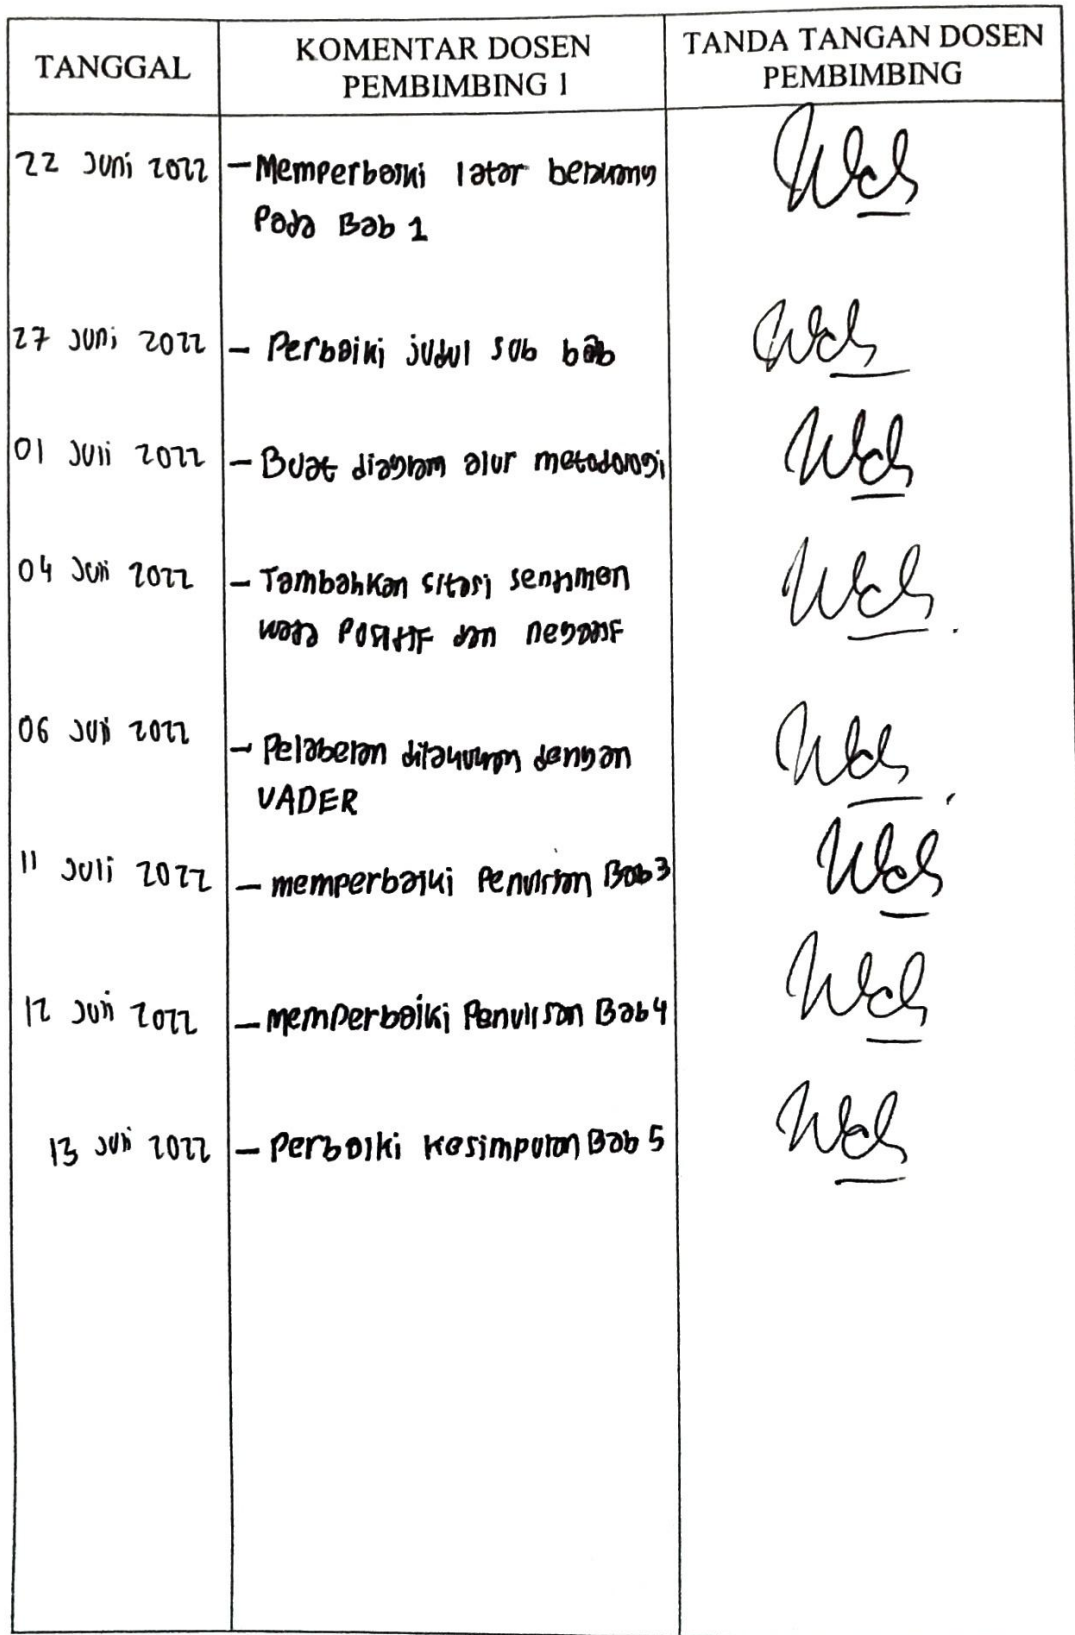 TANGGAL
KOMENTAR DOSEN
PEMBIMBING 1
TANDA TANGAN DOSEN
PEMBIMBING
22 Juni 2022
- Memperbaiki latar belakang
Pada Bab 1
27 Juni 2022
- Perbaiki judul sub bab
01 Juli 2022
- Buat diagram alur metodologi
04 Juli 2022
- Tambahkan sitasi sentimen
kata Positif dan negatif
06 Juli 2022
- Pelabelan dilakukan dengan
VADER
11 Juli 2022
- memperbaiki Penulisan Bab 3
12 Juli 2022
- memperbaiki Penulisan Bab 4
13 Juli 2022
- Perbaiki Kesimpulan Bab 5